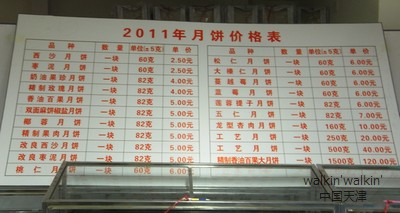 2011年月饼价格表
品种 数量 单位(±5克) 单价 品种 数量 单位(±5克) 单价
西沙月饼 一块 60克 2.50元 松仁月饼 一块 60克 6.00元
枣泥月饼 一块 60克 2.50元 大榛仁月饼 一块 60克 6.00元
奶油果珍月饼 一块 82克 4.00元 蔓越莓月饼 一块 60克 6.00元
精制玫瑰月饼 一块 82克 4.00元 蓝莓月饼 一块 60克 6.00元
香油百果月饼 一块 82克 5.00元 莲蓉月饼 一块 60克 7.00元
双面麻饼椒盐月饼 一块 82克 5.00元 五仁月饼 一块 82克 7.00元
椰蓉月饼 一块 82克 5.00元 龙型杏肉月饼 一块 160克 10.00元
精制果肉月饼 一块 82克 5.00元 工艺月饼 一块 250克 20.00元
改良西沙月饼 一块 82克 5.00元 工艺月饼 一块 500克 40.00元
改良枣泥月饼 一块 82克 5.00元 精制香油百果大月饼 一块 1500克 120.00元
桃仁月饼 一块 60克 6.00元
walkin'walkin'
中国天津